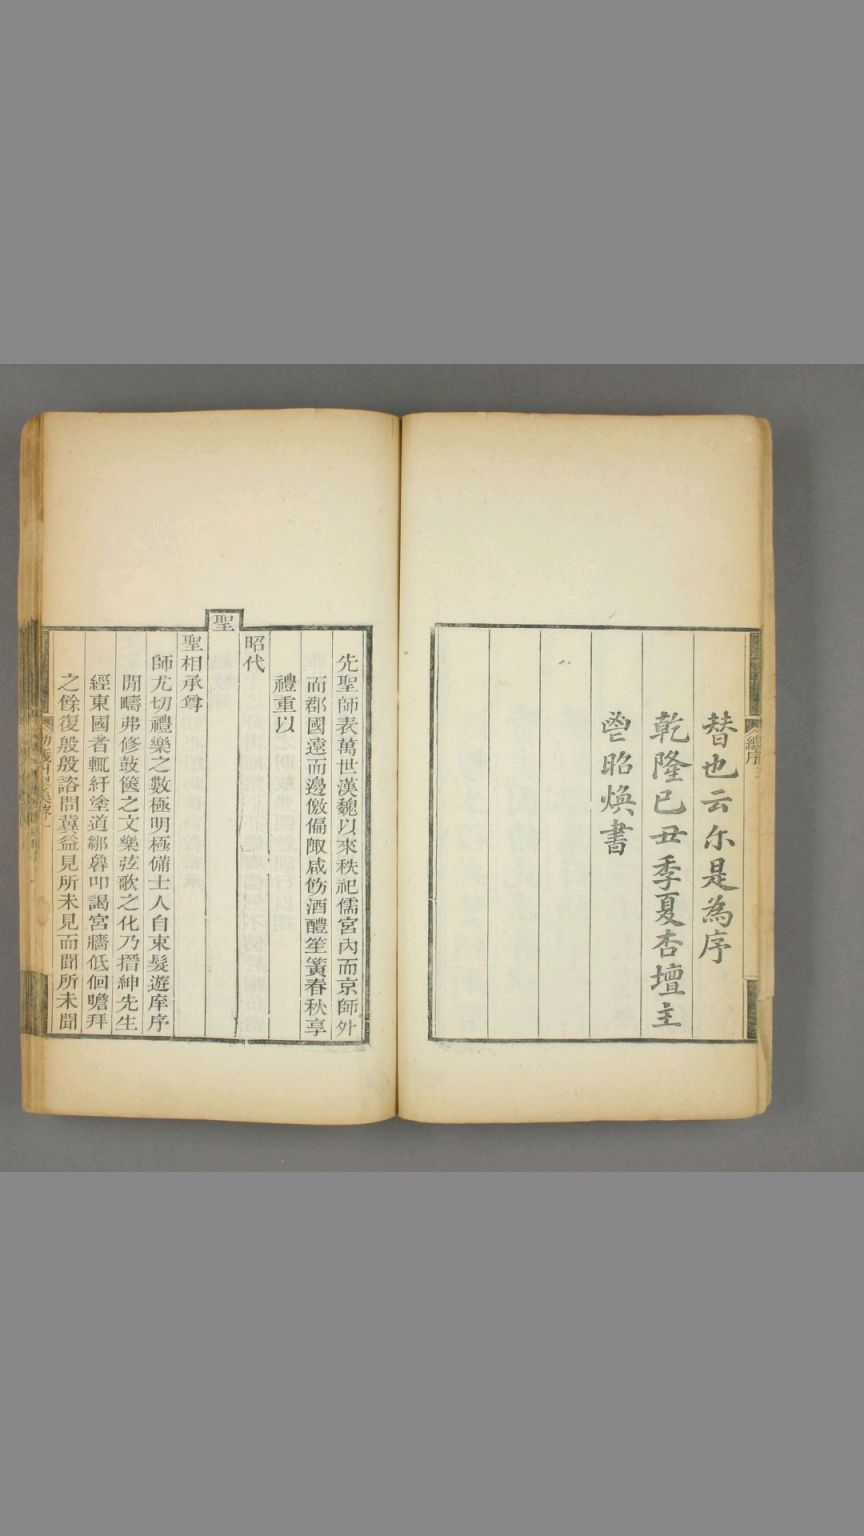 替也云尔是為序
乾隆己丑季夏杏壇主
鬯昭煥書
總序
先聖師表萬世漢魏以來秩祀儒宮內而京師外
而郡國遠而邊徼偏陬咸飭酒醴笙簧春秋享
禮重以
昭代
聖
聖相承尊
師尤切禮樂之數極明極備士人自束髮遊庠序
閒疇弗修鼓篋之文樂弦歌之化乃搢紳先生
經東國者輒紆塗道鄒魯叩謁宮牆低佪瞻拜
之餘復殷殷諮問冀益見所未見而聞所未聞